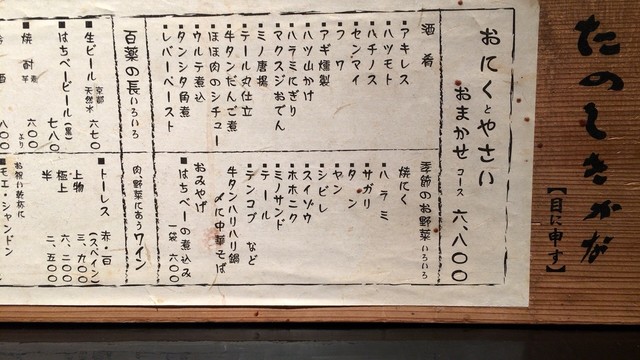 たのしきかな
【目に申す】
おにくとやさい
おまかせ コース 六、八〇〇
酒肴
■アキレス
■ハツモト
■ハチノス
■センマイ
■フワ
■アギ燻製
■ハツ山かけ
■ハラミにぎり
■マクスジおでん
■ミノ唐揚
■テール丸仕立
■牛タンだんご煮
■ほほ肉のシチュー
■ウルテ煮込
■タンシタ角煮
■レバーペースト
季節のお野菜いろいろ
焼にく
■ハラミ
■サガリ
■タン
■ヤン
■シビレ
■スイゾウ
■ホホニク
■ミノサンド
■テール
■テンコブ など
牛タンハリハリ鍋
〆に中華そば
おみやげ
■はちべーの煮込み
一袋 六〇〇
百薬の長いろいろ
■生ビール 京都天然水 六七〇
■はちべービール(黒) 七八〇
■焼酎 麦 芋 六〇〇より
酒 八〇〇
肉、野菜にあうワイン
■トーレス 赤・白
(スペイン) 三、九〇〇
上物 六、二〇〇
極上
半 二、五〇〇
お祝い乾杯に
■モエ・シャンドン